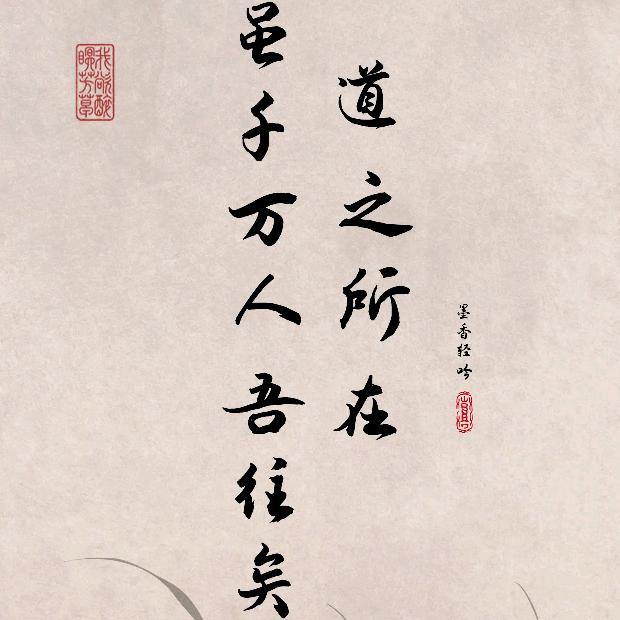 墨香轻吟
道之所在
虽千万人吾往矣
我欲醉
眠芳草